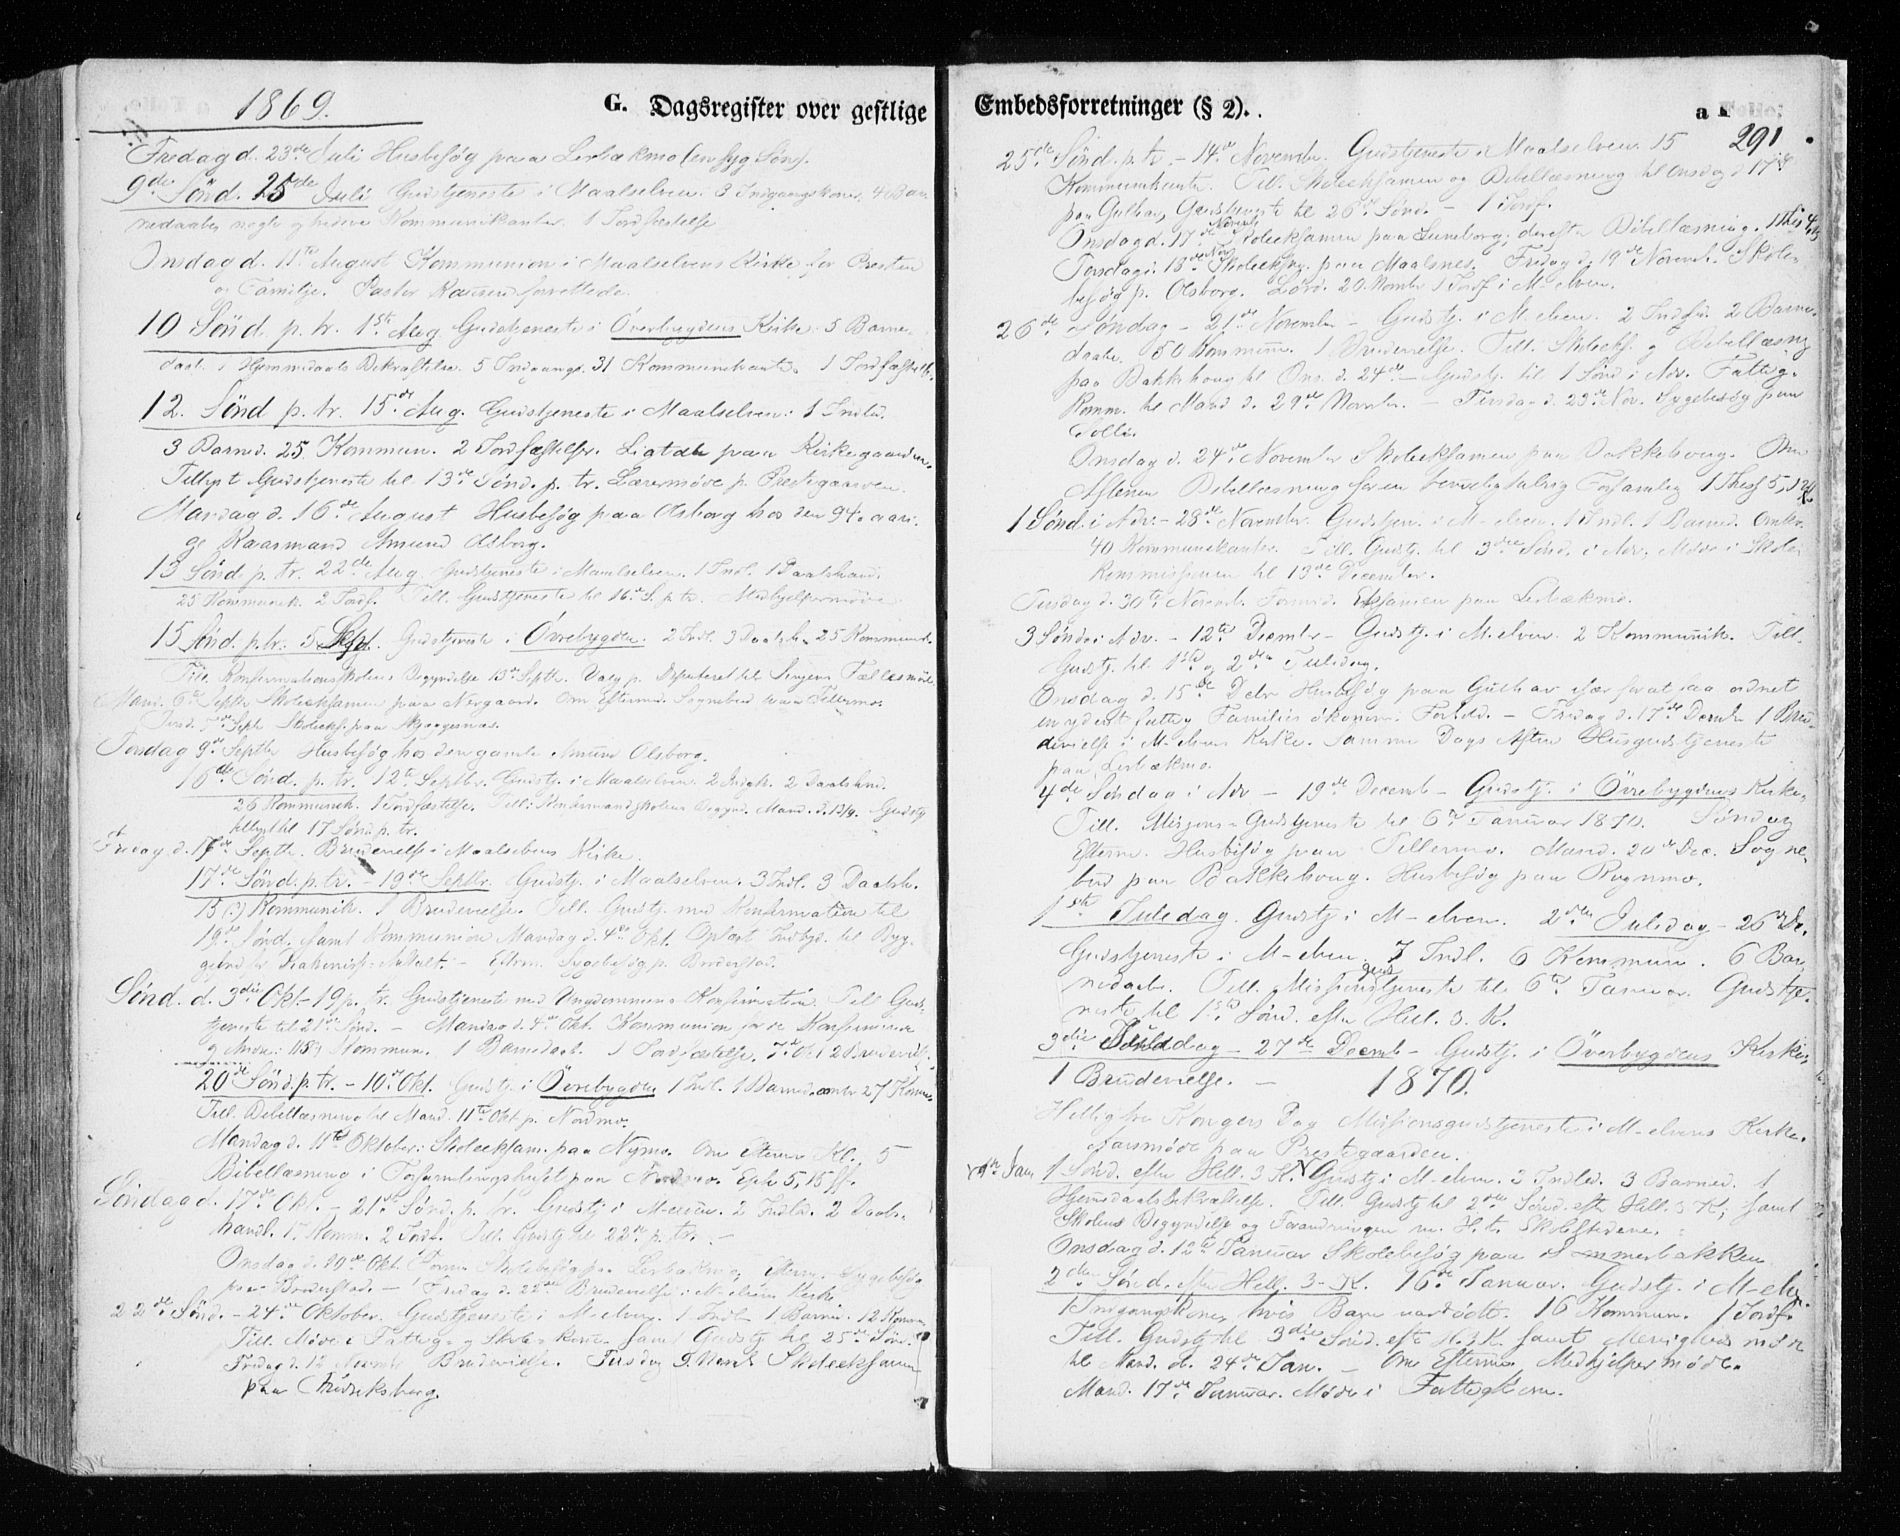 1869.
G. Dagsregister over gestlige
Fredag d. 23de Juli Husbesøg paa Lerbækmo (en syg Søn).
9de Sönd. 25de Juli Gudstjeneste i Maalselven. 3 Indgangskoner, 4 Bar-
nedaab, nogle og tredive Kommunikanter. 1 Jordfæstelse
Onsdag d. 11te August Kommunion i Maalselvens Kirke for Presten
og Familje. Pastor forrettede.
10 Sönd p. tr. 1ste Aug. Gudstjeneste i Överbygdens Kirke. 5 Barne-
daab. 1 Hjemmedaabs Bekræftelse. 5 Indgangs. 31 Kommunikanter. 1 Jordfæstelse.
12. Sönd p. tr. 15de Aug. Gudstjeneste i Maalselven. 1 Indled.
3 Barned. 25 Kommun. 2 Jordfæstelser. Ligtale paa Kirkegaarden.
Tillyst Gudstjeneste til 13de Sönd. p. tr. Læremöde p. Prestegaarden.
Mandag d. 16de August Husbesøg paa Olsborg hos den 94-aari-
ge Raasmand Amund Olsborg.
13 Sönd p. tr. 22de Aug. Gudstjeneste i Maalselven. 1 Indl. 1 Daabshand.
25 Kommunik. 2 Jordf. Till. Gudstjeneste til 16de S. p. tr. Medhjelpermöde
15 Sönd. p. tr. 5 Sept. Gudstjeneste i Övrebygden. 2 Indl. 3 Daabsh. 25 Kommunik.
Till. Konfirmationsskolens Begyndelse 13de Septb. Valg p. Deputeret til Fællesmöde
Mand. 6te Septbr. Skoleeksamen paa Nergaard. Om Eftermd. Sognebud paa Fillermo.
Tirsd. 7de Septb. Skoleeks. paa
Torsdag 9de Septbr. Husbesøg hos den gamle Amund Olsborg.
16de Sönd. p. tr. 12te Septbr. Gudstj. i Maalselven. 2 Indgk. 2 Daabshand.
26 Kommunik. 1 Jordfæstelse. Till. Begynd. Mand. d. 13/9. Gudstj.
tillyst til 17 Sönd p. tr.
Fredag d. 17de Septbr. Brudevielse i Maalselvens Kirke.
17de Sönd. p. tr. - 19de Septbr. Gudstj. i Maalselven. 3 Indl. 3 Daabsh.
15 (?) Kommunik. 1 Brudevielse. Till. Gudstj. med Konfirmation til
19de Sönd. samt Kommunion Mandag d. 4de Okt. Oplæst Indbyd. til Byg-
gelse for Diakonisse-Anstalt. - Efterm. Sygebesøg p. Broderstad.
Sönd. d. 3die Okt. - 19 p. tr. Gudstjeneste med Ungdommens Konfirmation. Till. Guds-
tjeneste til 21de Sönd. - Mandag d. 4de Okt. Kommunion for de Konfirmerede
og Andre: 118 Kommun. 1 Barnedaab. 1 Jordfæstelse. 7de Okt. 2 Brudeviels.
20de Sönd. p. tr. - 10de Okt. Gudstj. i Övrebygden 1 Indl. 1 Barned. omtr. 27 Komm.
Till. Bibellæsning til Mand. 11te Okt. p. Nordmo.
Mandag d. 11te Oktober: Skoleeksam. paa Nymo. Om Efterm. Kl. 5
Bibellæsning i Forsamlingshuset paa Nordmo. Eph. 5, 15 ff.
Söndag d. 17de Okt. - 21de Sönd. p. tr. Gudstj. i M-elven. 2 Indld. 2 Daabs-
handl. 17 Komm. 2 Jordf. Till. Gudstj. til 22de p. tr. -
Onsdag d. Okt. Form. Skolebesøg paa Lerbækmo, Efterm. Sygebesøg
paa Broderstad. - Fredag d. 22de Brudevielse i M-elvens Kirke
22de Sönd. - 24de Oktober. Gudstjeneste i M-elven. 1 Indl. 1 Barned. 12 Komm.
Till. Möde i Fattig- og Skole-Kom. samt Gudstj. til 25de Sön.
Fredag d. 12 Novmb. Brudevielse. Tirsdag 9. Novb. Skoleeksamen
paa Fredriksberg.
Embedsforretninger (§ 2).
a Folio:
291
25de Sönd. p. tr. - 14de Novembr. Gudstjeneste i Maalselven. 15
Kommunikanter. Till. Skoleeksamen og Bibellæsning til Onsdag d. 17de
paa Gulhav, Gudstjeneste til 26de Sönd. - 1 Jordf.
Onsdag d. 17de Novemb. Skoleeksamen paa Luneborg; derefter Bibellæsning. 1 Thes. 4
Torsdag d. 18de Nov. Skoleeks. paa Maalsnes. Fredag d. 19de Novemb. Skole-
besøg p. Olsborg. Lørd. 20. Novmbr 1 Jordf. i M-elven.
26de Söndag - 21de November - Gudstj. i M-elven. 2 Indled. 2 Barne-
daab. 50 Kommun. 1 Brudevielse. Till. Skoleeks. og Bibellæsning
paa Bakkehoug til Ons. d. 24de - Gudstj. til 1 Sönd i Adv. Fattig-
komm. til Mand d. 29de Novmbr. - Tirsdag d. 23de Nov. Sygebesøg paa
Solli.
Onsdag d. 24de November Skoleeksamen paa Bakkehoug. Om
Aftenen Bibellæsning for en Forsamling 1 Thess. 5, 1
1 Sönd. i Adv. - 28de November. Gudstjen. i M-elven. 1 Indl. 1 Barned. Omtr.
40 Kommunikanter. Till. Gudstj. til 3die Sönd. i Adv., Möde i Skole-
kommissionen til 13de December.
Tirsdag d. 30te Novemb. Formd. Eksamen paa Lerbækmo.
3 Söndag i Adv. - 12te Decmbr - Gudstj. i M-elven. 2 Kommunik. Till.
Gudstj. til 1ste og 2den Juledag.
Onsdag d. 15de Decbr. Husbesøg paa Gulhav især for at faa ordnet
en yderst fattig Families ökonom. Forhold. - Fredag d. 17de Decmbr. 1 Bru-
devielse i M-elvens Kirke. Samme Dags Aften Husgudstjeneste
paa Lerbækmo.
4de Söndag i Adv - 19de Decemb. - Gudstj. i Övrebygdens Kirke.
Till. Missions-Gudstjeneste til 6te Januar 1870. Söndag
Efterm. Husbesøg paa Fillermo. Mand. 20de Dec. Sogne-
bud paa Bakkehoug. Husbesøg paa Rognmo.
1ste Juledag. Gudstj. i M-elven. 2den Juledag - 26de De.
Gudstjeneste i M-elven. 7 Indl. 6 Kommun. 6 Bar-
nedaab. Till. Missionsgudstjeneste til 6te Januar. Gudstje-
neste til 1ste Sönd. efter Hell. 3 K.
3die Juledag - 27de Decemb. - Gudstj. i Överbygdens Kirke.
1 Brudevielse. - 1870.
Hellig tre Kongers Dag Missionsgudstjeneste i M-elvens Kirke.
Aarsmöde paa Prestegaarden.
9de Jan. 1 Sönd. efter Hell. 3 K. Gudstj. i M-elven. 2 Indled. 3 Barned. 1
Hjemedaabsbekræftelse. Till. Gudstj. til 2den Sönd. efter Hell. 3 K, samt
Skolens Begyndelse og Forandringen m. H. t. Skolestederne.
Onsdag d. 12te Januar Skolebesøg paa Sommerbakken
2den Sönd. efter Hell. 3-K. 16de Januar. Gudstj. i M-elv.
1 Indgangskone, hvis Barn var dødt. 16 Kommun. 1 Jordf.
Till. Gudstj. til 3die Sönd. efter H. 3 K. samt Menigheds möde
til Mand. d. 24de Jan. - Om Efterm. Medhjelpermöde.
Mand. 17de Januar. Möde i Fattigkom.